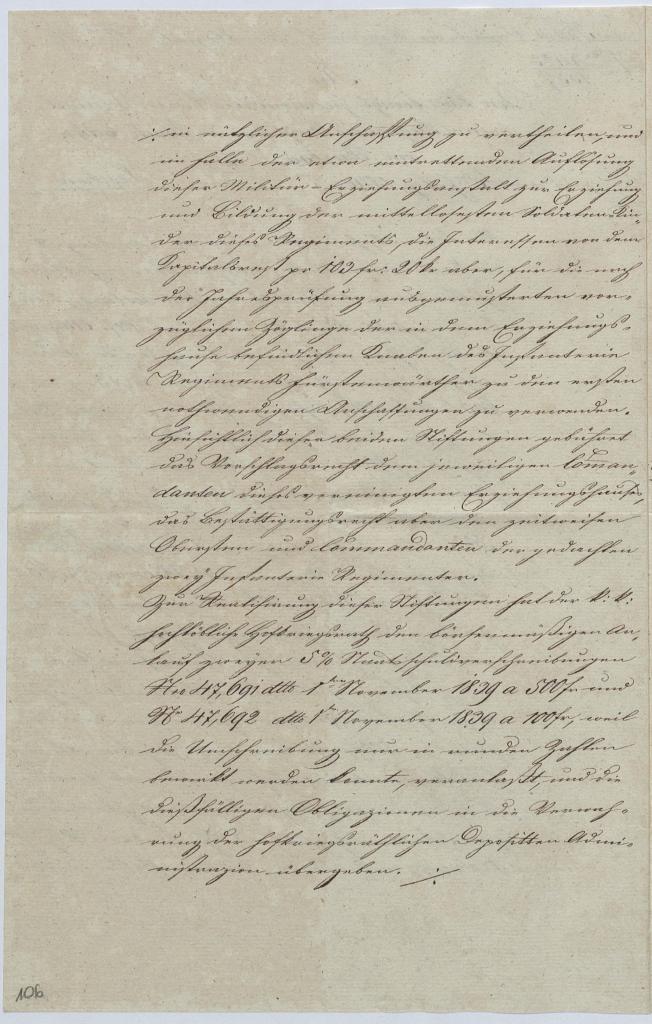 ./. in nützlicher Anschaffung zu vertheilen, und
im Falle der etwa eintrettenden Auflösung
dieser Militär-Erziehungsanstalt zur Erziehung
und Bildung der mittellosesten Soldaten Kin-
der dieses Regiments, die Interessen von dem
Kapitalsrest pr 103 fr: 20 kr aber, für die nach
der Jahresprüfung ausgemusterten vor-
züglichen Zöglinge der in dem Erziehungs-
hause befindlichen Knaben des Infanterie
Regiments Fürstenwärther zu den ersten
nothwendigen Anschaffungen zu verwenden.
Hinsichtlich dieser beiden Stiftungen gebühret
das Vorschlagsrecht dem jeweiligen Comman-
danten dieses vereinigten Erziehungshauses,
das Bestättigungsrecht aber den zeitweisen
Obersten und Commandanten der gedachten
zwey Infanterie Regimenter.
Zur Realisirung dieser Stiftungen hat der k: k:
hochlöbliche Hofkriegsrath den börsenmäßigen An-
kauf zweyer 5 % Staatsschuldverschreibungen
Nro 47,691 dtto 1ten November 1839 a 500 fr und
No 47,692 dtto 1ten November 1839 a 100 fr, weil
die Umschreibung nur in runden Zahlen
bewirkt werden konnte, veranlaßt, und die
dießfälligen Obligazionen in die Verwah-
rung der hofkriegsräthlichen Depositten Admi-
nistrazion übergeben. ./.
106